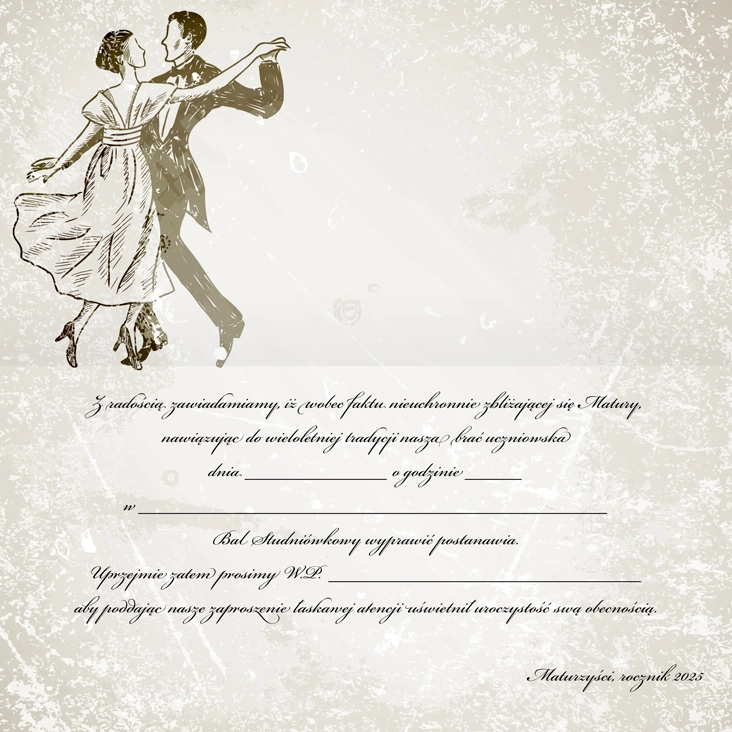 Z radością zawiadamiamy, iż wobec faktu nieuchronnie zbliżającej się Matury,
nawiązując do wieloletniej tradycji nasza brać uczniowska
dnia ____________________ o godzinie ________
w ____________________________________________________________________
Bal Studniówkowy wyprawić postanawia.
Uprzejmie zatem prosimy W.P. ____________________________________________
aby poddając nasze zaproszenie łaskawej atencji uświetnił uroczystość swą obecnością.
Maturzyści, rocznik 2025